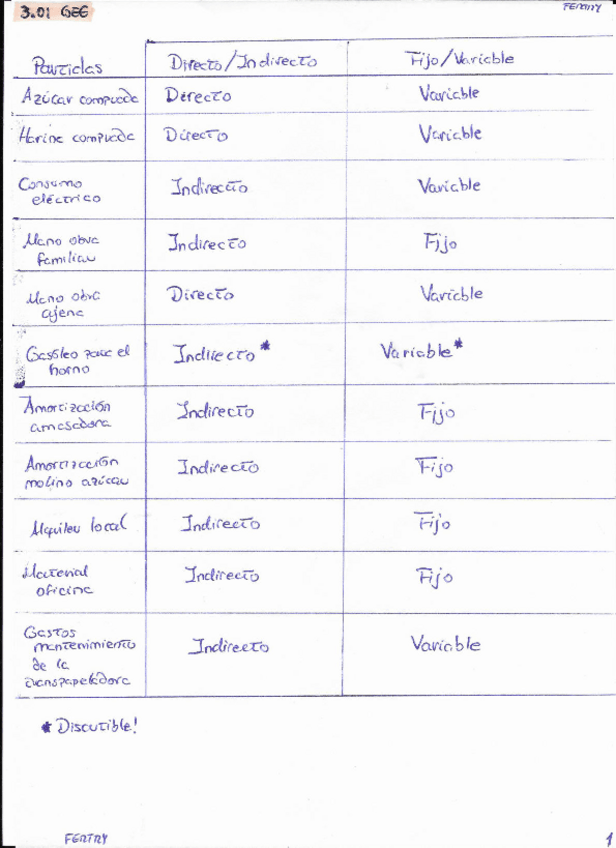 3.01 GEE
FERTRY
Partidas Directo/Indirecto Fijo/Variable
Azúcar comprada Directo Variable
Harina comprada Directo Variable
Consumo
eléctrico Indirecto Variable
Mano obra
familiar Indirecto Fijo
Mano obra
ajena Directo Variable
Gasóleo para el
horno Indirecto* Variable*
Amortización
amasadora Indirecto Fijo
Amortización
molino azúcar Indirecto Fijo
Alquiler local Indirecto Fijo
Material
oficina Indirecto Fijo
Gastos
mantenimiento
de la
Indirecto Variable
* Discutible!
FERTRY
1